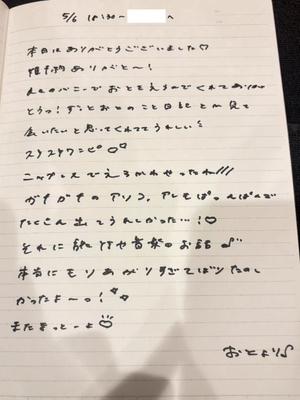 5/6 18:30~ へ
本日はありがとうございました♡
贈り物ありがと〜!
バニーでおとをえらんでくれてありが
とうっ! ずっとおとのこと日記とか見て
会いたいと思ってくれててうれしい
スケスケワンピ♡♡
ニップレスでえろ かったね///
ガチガチのアソコ、アレも
たくさん出てうれしかった…!♡
それに旅行や音楽のお話♪
本当にモリあがりすぎてばりたのし
かったよーっ!
またきっとーよ♡
おとより♪